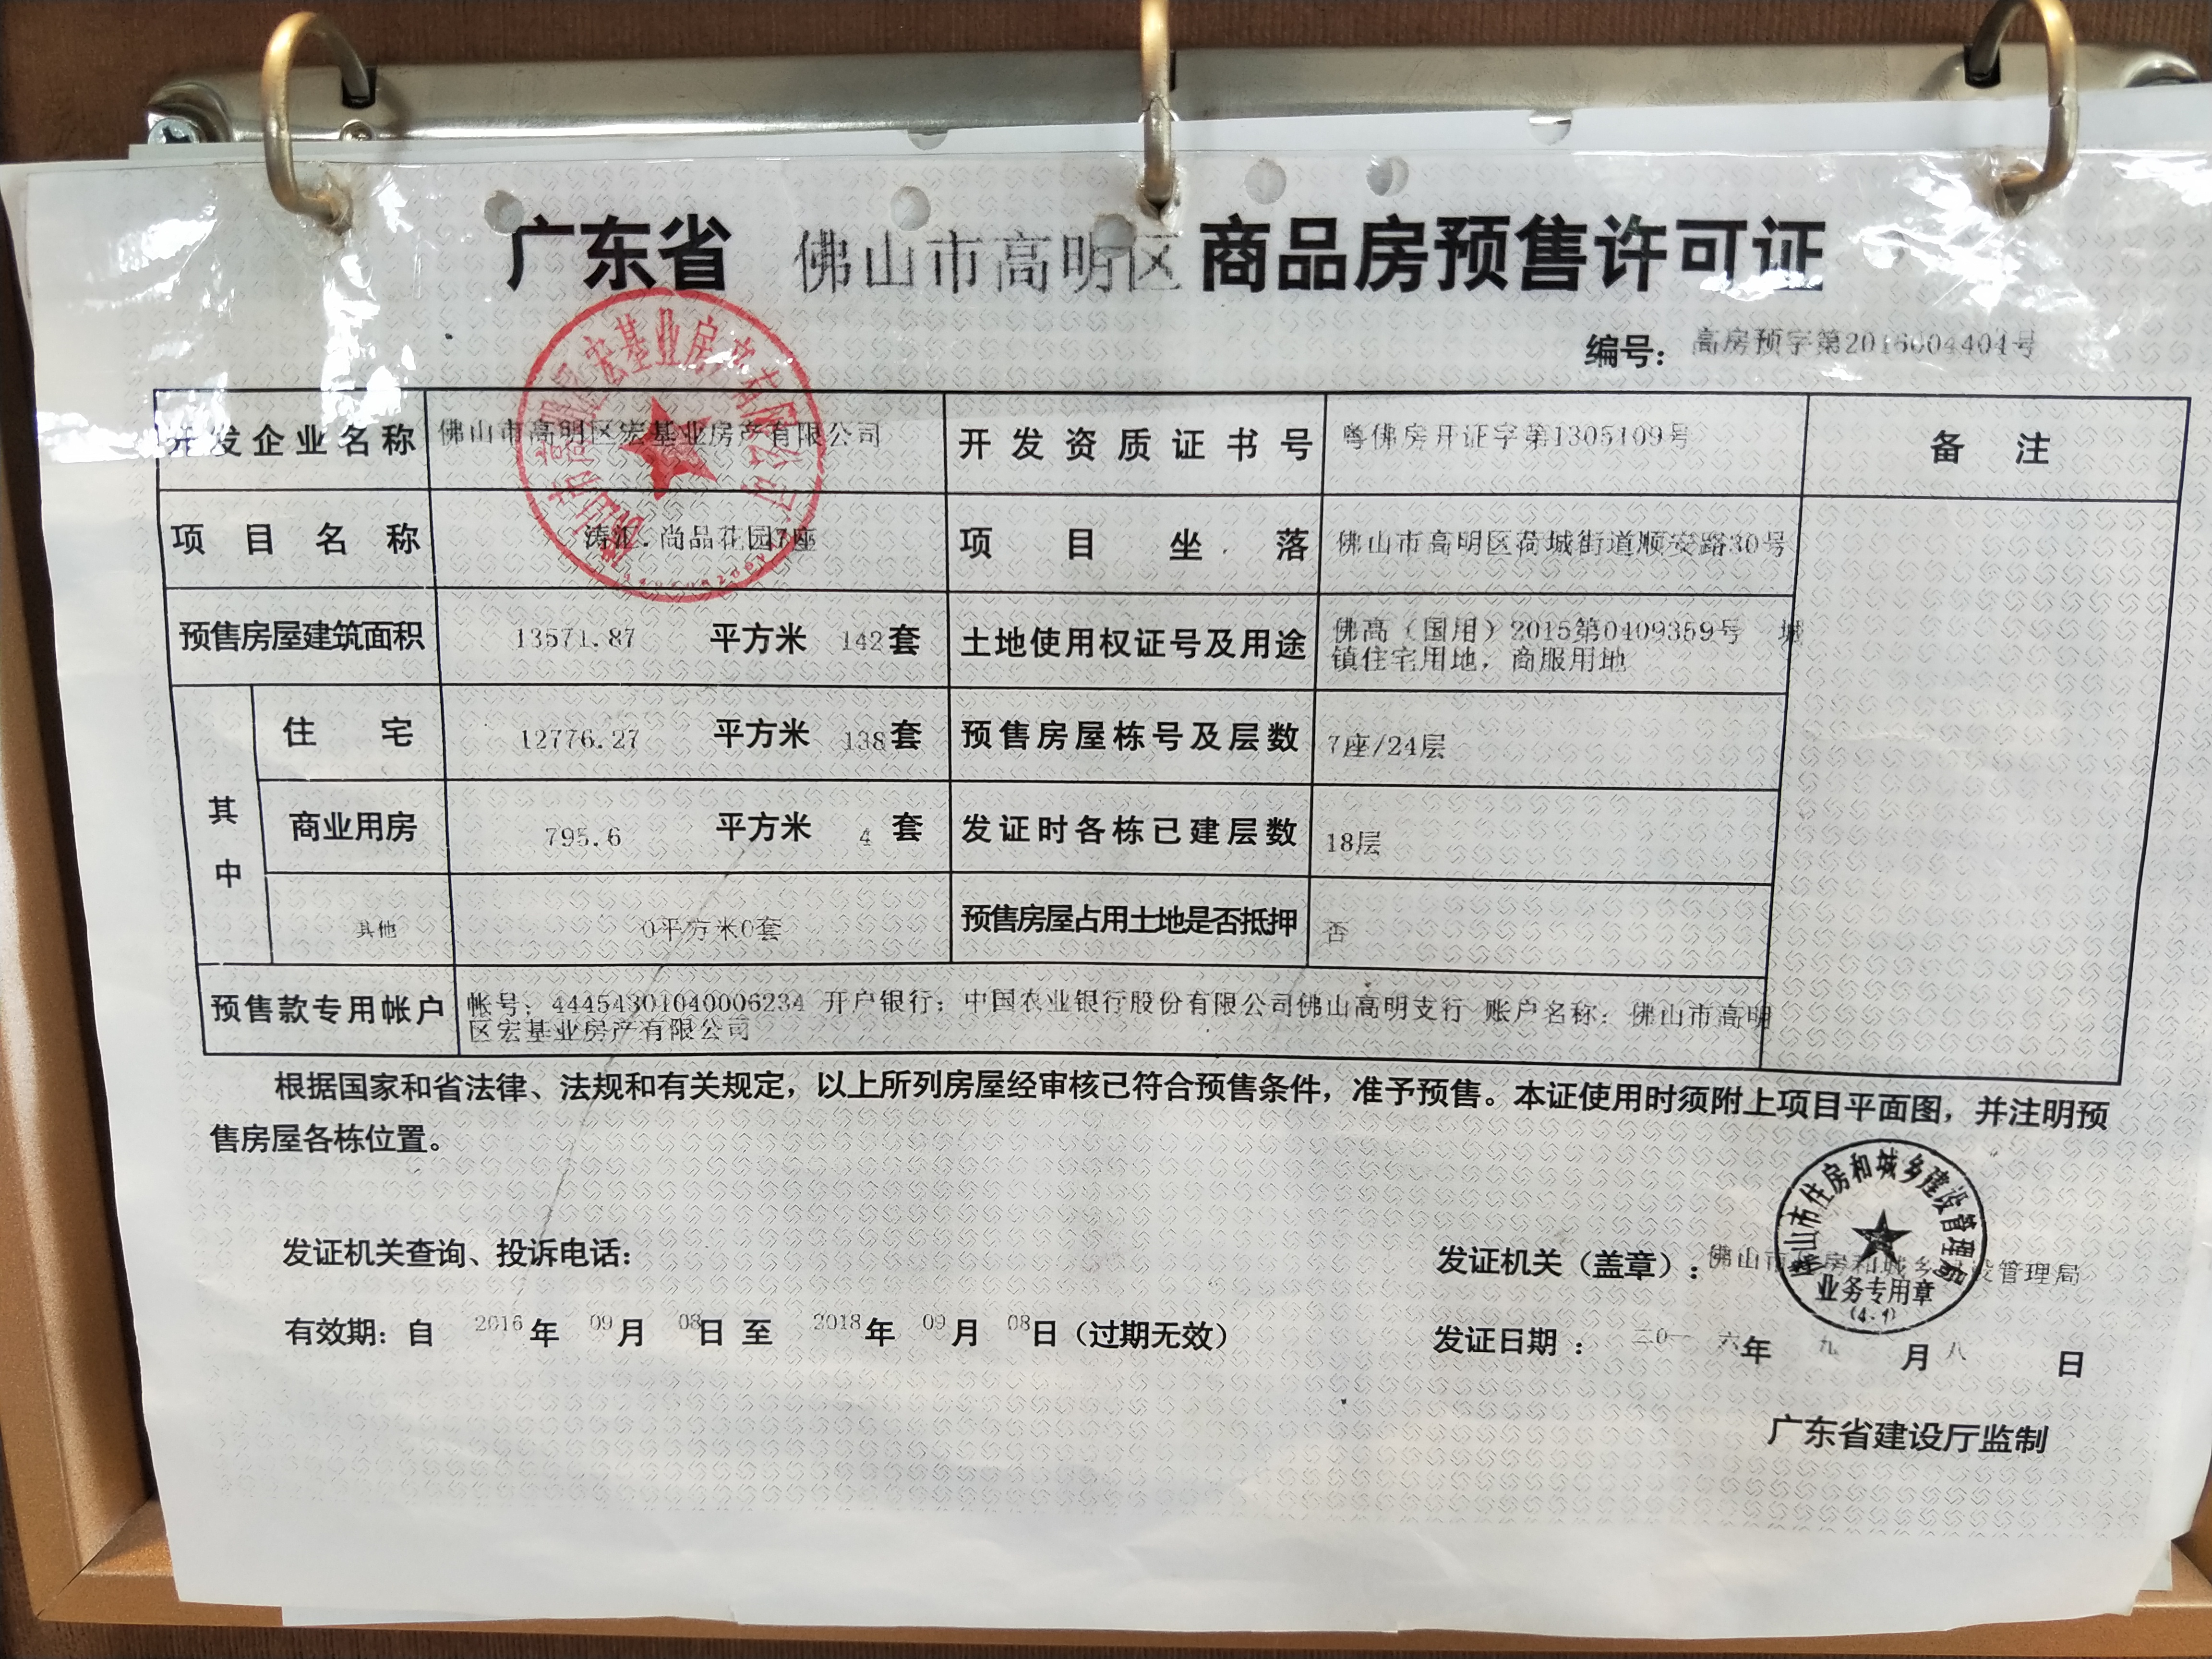 广东省 佛山市高明区 商品房预售许可证
编号: 高房预字第2016004404号
开发企业名称 佛山市高明区宏基业房产有限公司 开发资质证书号 粤佛房开证字第1305109号 备注
项目名称 涛汇.尚品花园7座 项目坐落 佛山市高明区荷城街道顺安路30号
预售房屋建筑面积 13571.87 平方米 142套 土地使用权证号及用途 佛高（国用）2015第0409359号 城
镇住宅用地，商服用地
其中
住宅 12776.27 平方米 138套 预售房屋栋号及层数 7座/24层
商业用房 795.6 平方米 4套 发证时各栋已建层数 18层
其他 0平方米0套 预售房屋占用土地是否抵押 否
预售款专用帐户 帐号：44454301040006234 开户银行：中国农业银行股份有限公司佛山高明支行 账户名称：佛山市高明
区宏基业房产有限公司
根据国家和省法律、法规和有关规定，以上所列房屋经审核已符合预售条件，准予预售。本证使用时须附上项目平面图，并注明预
售房屋各栋位置。
发证机关查询、投诉电话：
发证机关（盖章）：佛山市住房和城乡建设管理局
有效期：自 2016年 09月 08日 至 2018年 09月 08日（过期无效）
发证日期： 二0一六年 九月八日
广东省建设厅监制
佛山市高明区宏基业房产有限公司
佛山市住房和城乡建设管理局
业务专用章
(4-1)